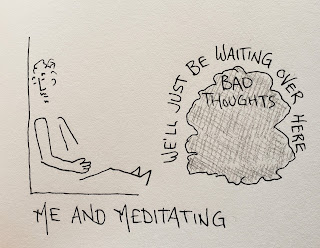 WE'LL JUST BE WAITING OVER HERE
BAD
THOUGHTS
ME AND MEDITATING